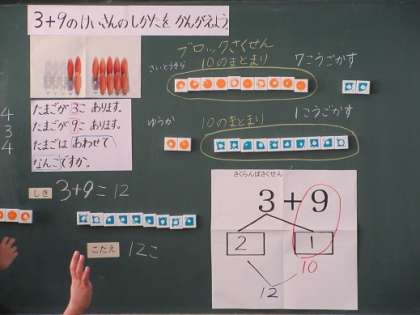 3+9のけいさんのしかたを かんがえよう
たまごが 3こ あります。
たまごが 9こ あります。
たまごは あわせて
なんこですか。
しき 3+9=12
こたえ 12こ
ブロックさくせん
さいとうさん 10のまとまり 7こうごかす
ゆうか 10のまとまり 1こうごかす
さくらんぼさくせん
3+9
2 1
10
12
4
3
4